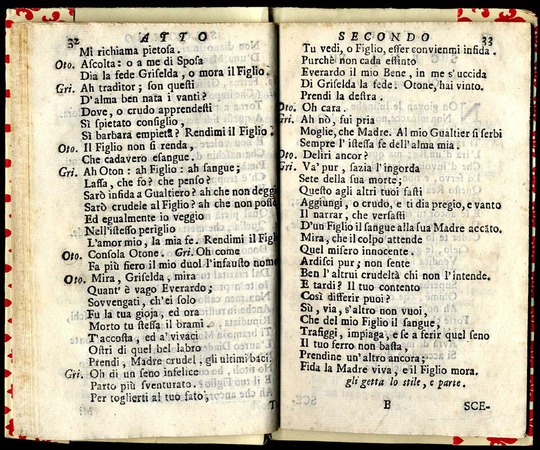 32 ATTO
Mi richiama pietosa.
Oto. Ascolta: o a me di Sposa
Dia la fede Griselda, o mora il Figlio.
Gri. Ah traditor; son questi
D'alma ben nata i vanti?
Dove, o crudo apprendesti
Sì spietato consiglio,
Sì barbara empietà? Rendimi il Figlio
Oto. Il Figlio non si renda,
Che cadavero esangue.
Gri. Ah Oton: ah Figlio: ah sangue;
Lassa, che fo? che penso?
Sarò infida a Gualtiero? ah che non deggi
Sarò crudele al Figlio? ah che non posso
Ed egualmente io veggio
Nell'istesso periglio
L'amor mio, la mia fe. Rendimi il Figl
Oto. Consola Otone. Gri. Oh come
Fa più fiero il mio duol l'infausto nome
Oto. Mira, Griselda, mira
Quant'è vago Everardo;
Sovvengati, ch'ei solo
Fu la tua gioja, ed ora
Morto tu stessa il brami.
T'accosta, ed a' vivaci
Ostri di quel bel labro
Prendi, Madre crudel, gli ultimi baci
Gri. Oh di un seno infelice
Parto più sventurato.
Per toglierti al tuo fato,
T
SECONDO 33
Tu vedi, o Figlio, esser convienmi infida.
Purchè non cada estinto
Everardo il mio Bene, in me s'uccida
Di Griselda la fede: Otone, hai vinto.
Prendi la destra.
Oto. Oh cara.
Gri. Ah nò, sui pria
Moglie, che Madre. Al mio Gualtier si serbi
Sempre l'istessa fe dell'alma mia.
Oto. Deliri ancor?
Gri. Va' pur, sazia l'ingorda
Sete della sua morte;
Questo agli altri tuoi fasti
Aggiungi, o crudo, e ti dia pregio, e vanto
Il narrar, che versasti
D'un Figlio il sangue alla sua Madre accáto.
Mira, che il colpo attende
Quel misero innocente.
Ardisci pur; non sente
Ben l'altrui crudeltà chi non l'intende.
E tardi? Il tuo contento
Così differir puoi?
Sù, via, s'altro non vuoi,
Che del mio Figlio il sangue,
Trafiggi, impiaga, e se a ferir quel seno
Il tuo ferro non basta,
Prendine un'altro ancora;
Fida la Madre viva, e il Figlio mora.
gli getta lo stile, e parte.
B SCE-